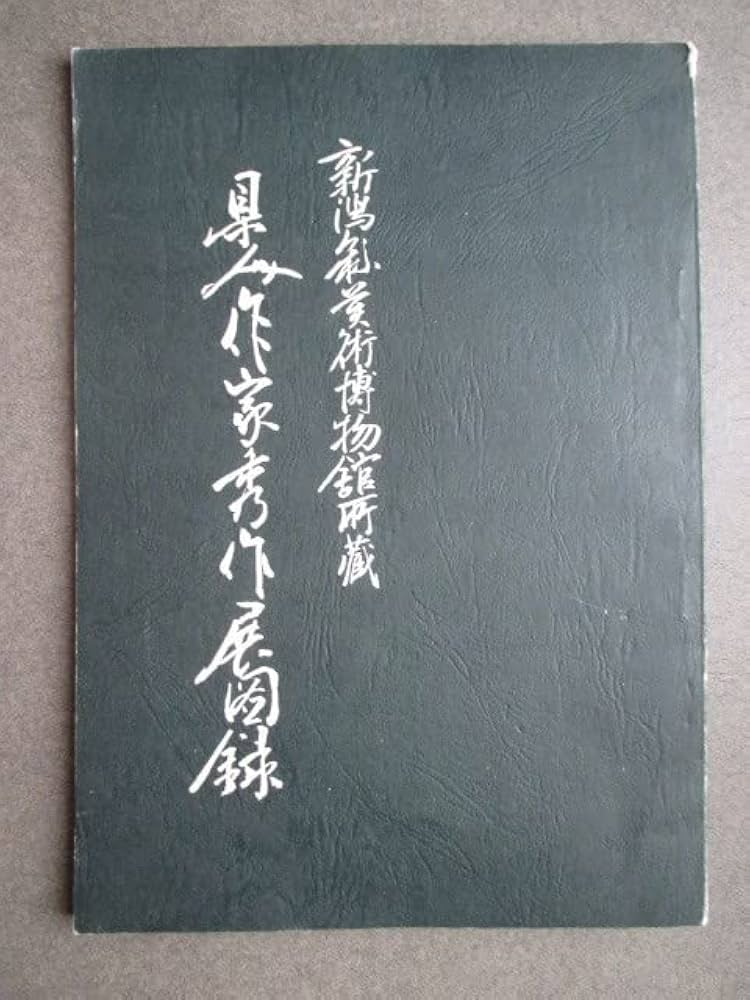 新潟県美術博物館所蔵
県人作家秀作展図録